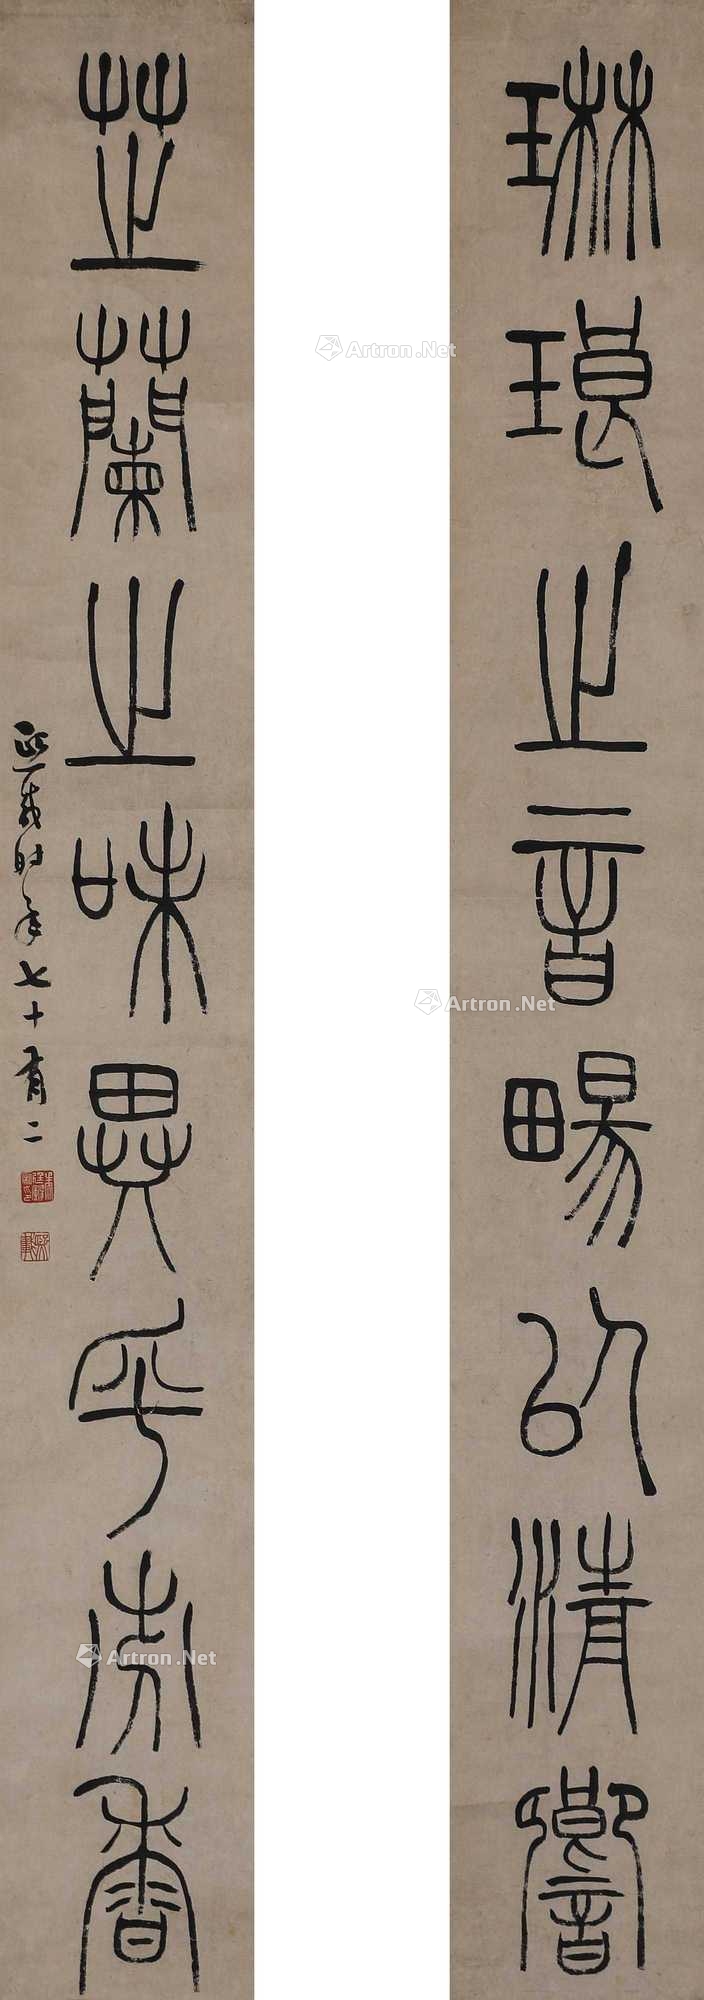 琳琅之音暢以清響
芝蘭之味異乎香
熙載時年七十有二
Artron.Net
Artron.Net
Artron.Net